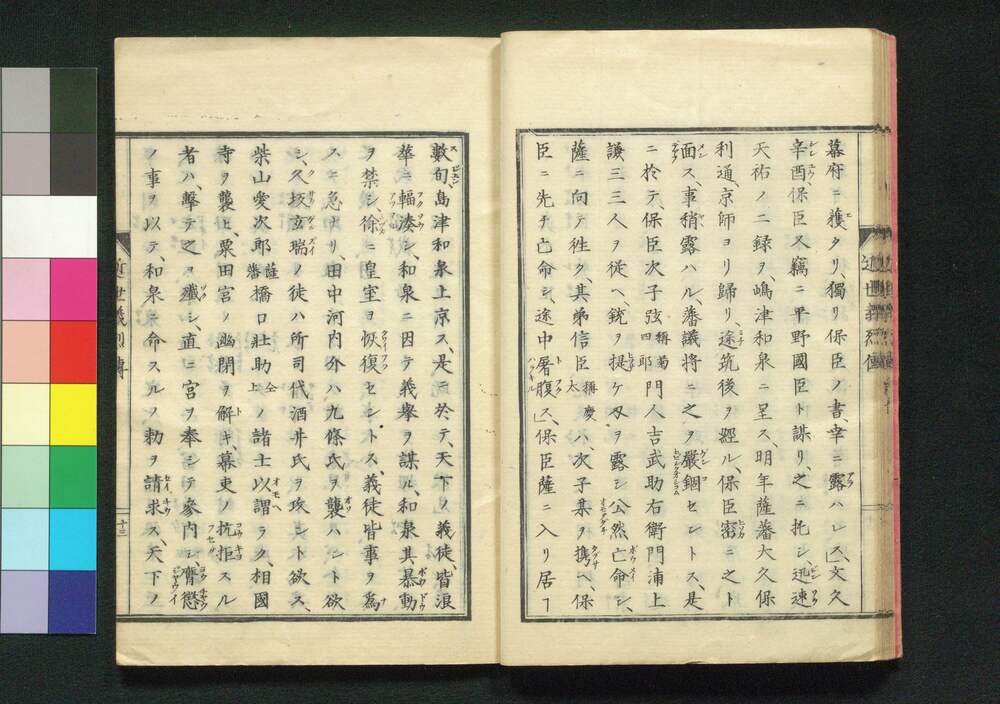 幕府ニ獲タリ、獨リ保臣ノ書、幸ニ露ハレス、文久
辛酉保臣又竊ニ平野國臣ト謀リ、之ニ托シ、迅速
天祐ノ二録ヲ、嶋津和泉ニ呈ス、明年薩藩大久保
利通、京師ヨリ歸リ、途筑後ヲ經ル、保臣密ニ之ト
面ス、事稍露ハル、藩議將ニ之ヲ嚴錮セントス、是
ニ於テ、保臣次子弦稱菊四郎門人吉武助右衛門浦上
謙三三人ヲ從ヘ、銃ヲ提ケ刃ヲ露シ、公然亡命シ、
薩ニ向テ徃ク、其弟信臣稱慶太ハ、次子某ヲ携ヘ、保
臣ニ先チ亡命シ、途中屠腹ス、保臣薩ニ入リ居ヿ
數旬島津和泉上京ス、是ニ於テ、天下ノ義徒、皆浪
華ニ輻湊シ、和泉ニ因テ義擧ヲ謀ル、和泉其暴動
ヲ禁シ、徐ニ皇室ヲ恢復セントス、義徒皆事ヲ爲
スニ急ナリ、田中河内介ハ九條氏ヲ襲ハント欲
シ、久坂玄瑞ノ徒ハ所司代酒井氏ヲ攻ント欲ス、
柴山愛次郎薩藩橋口壯助仝上ノ諸士以謂ラク、相國
寺ヲ襲ヒ、粟田宮ノ幽閉ヲ解キ、幕吏ノ抗拒スル
者ハ、擊テ之ヲ殲シ、直ニ宮ヲ奉シテ參内シ、膺懲
ノ事ヲ以テ、和泉ニ命スルヲ勅ヲ請求ス、天下ノ
近世義烈傳
十三